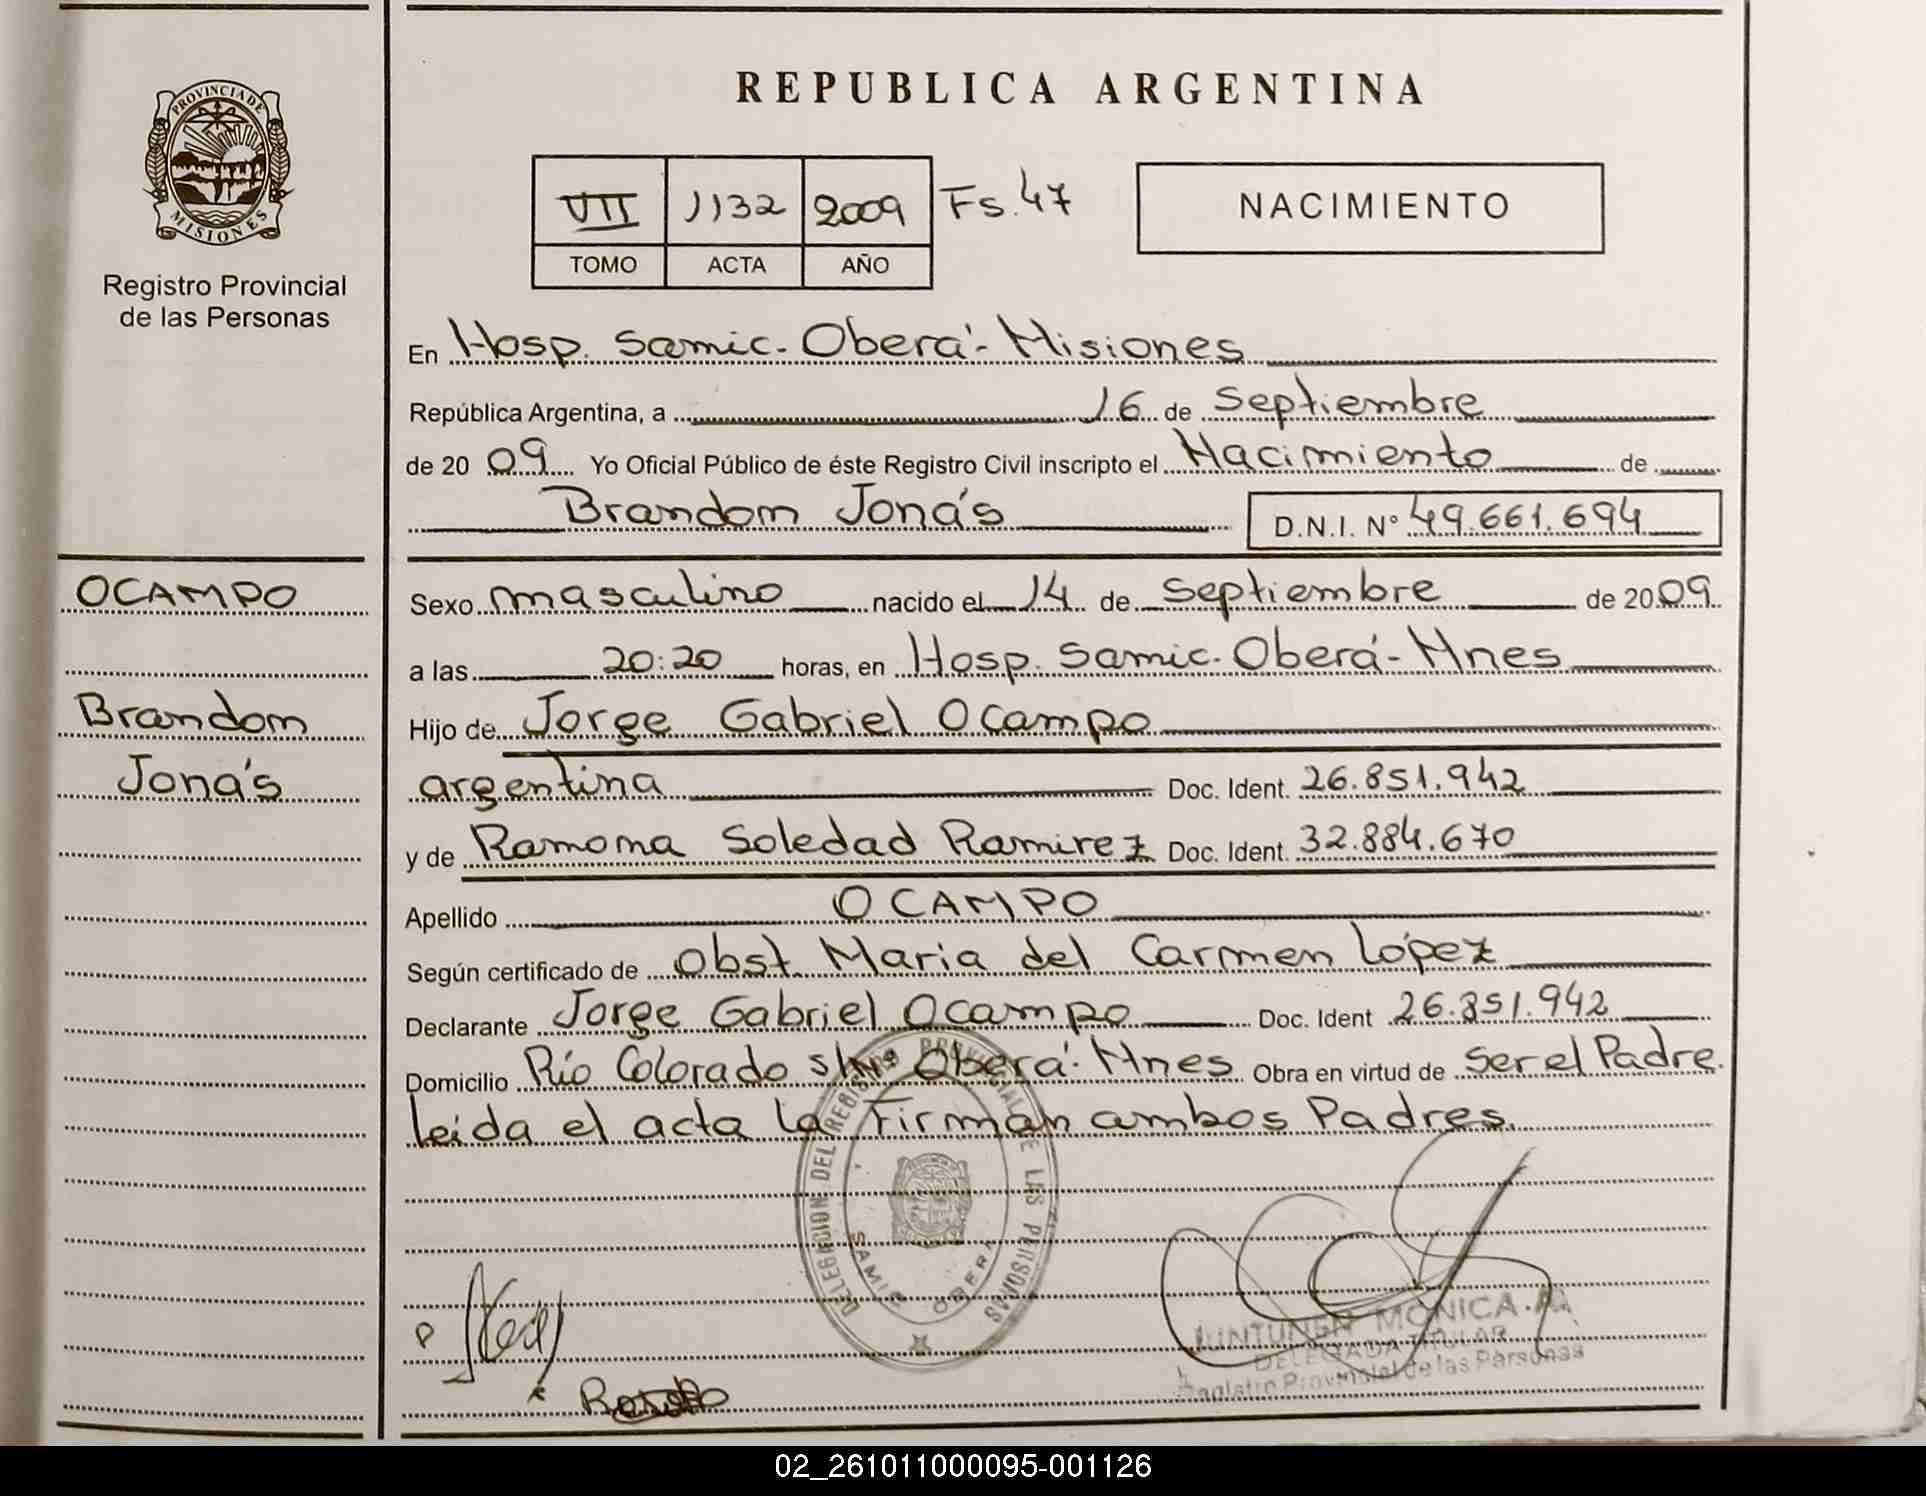 REPUBLICA ARGENTINA
PROVINCIA DE
MISIONES
Registro Provincial
de las Personas
VII 1132 2009 Fs. 47
TOMO ACTA AÑO
NACIMIENTO
En Hosp. Samic. Oberá - Misiones
República Argentina, a 16 de Septiembre
de 20 09 Yo Oficial Público de éste Registro Civil inscripto el Nacimiento de
Brandom Jonás
D.N.I. Nº 49.661.694
OCAMPO
Brandom
Jonás
Sexo masculino nacido el 14 de Septiembre de 20 09
a las 20:20 horas, en Hosp. Samic. Oberá - Mnes
Hijo de Jorge Gabriel Ocampo
argentina Doc. Ident. 26.851.942
y de Ramona Soledad Ramirez Doc. Ident. 32.884.670
Apellido OCAMPO
Según certificado de Obst. Maria del Carmen López
Declarante Jorge Gabriel Ocampo Doc. Ident 26.851.942
Domicilio Río Colorado s/Nº Oberá - Mnes Obra en virtud de Ser el Padre.
leida el acta la Firman ambos Padres.
DELEGACION DEL REGISTRO PROVINCIAL DE LAS PERSONAS
SAMIC OBERA
JUNTUNEN MONICA
DELEGADA TITULAR
Registro Provincial de las Personas
02_261011000095-001126